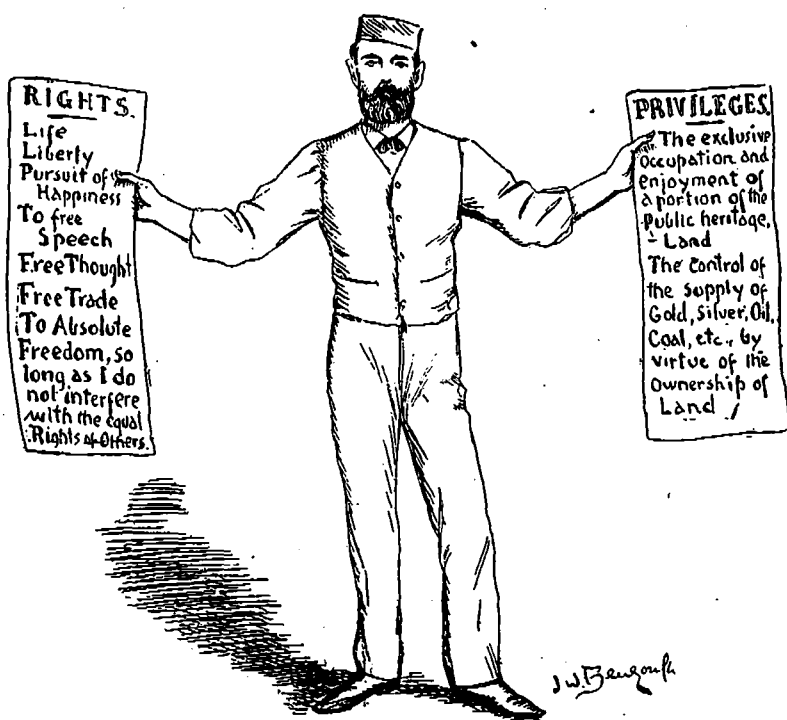 RIGHTS.
Life
Liberty
Pursuit of
Happiness
To free
Speech
Free Thought
Free Trade
To Absolute
Freedom, so
long as I do
not interfere
with the equal
Rights of Others.
PRIVILEGES.
The exclusive
occupation and
enjoyment of
a portion of the
Public heritage,
- Land
The control of
the supply of
Gold, Silver, Oil,
Coal, etc., by
virtue of the
ownership of
Land
J.W. Bengough